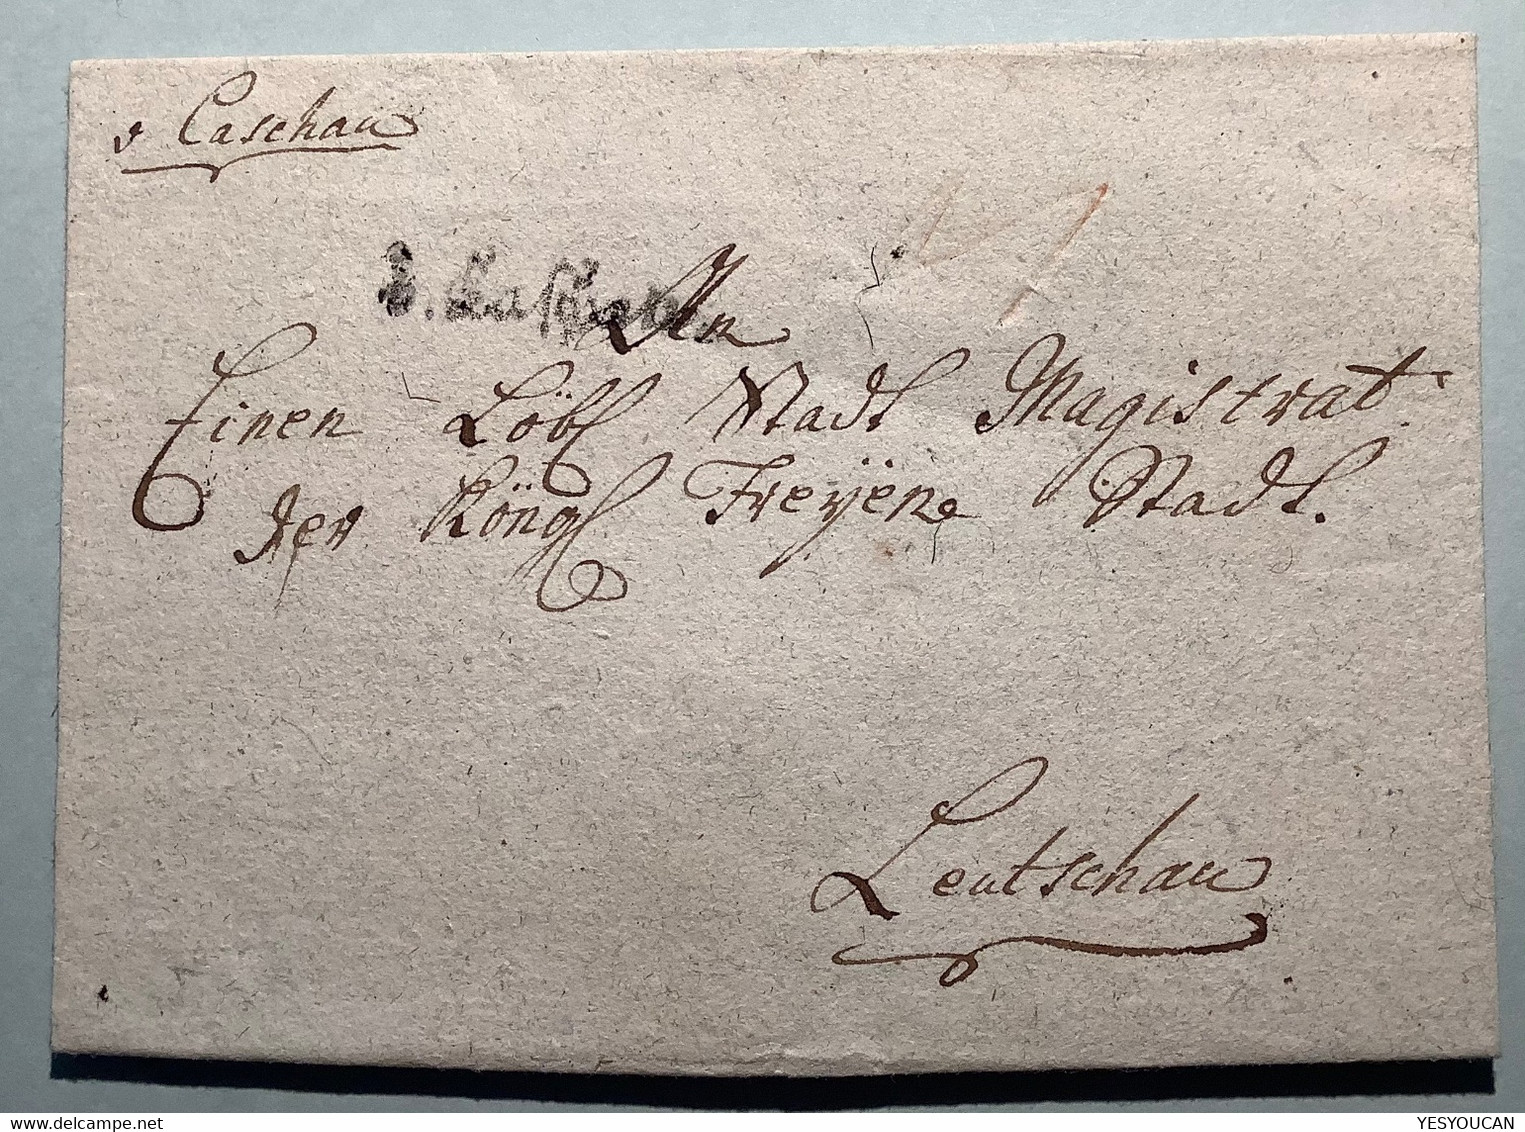 v Caschau
v. Kaschau
An
Einen Löbl Stadt Magistrat
der Köngl Freÿen Stadt.
Leutschau
YESYOUCAN